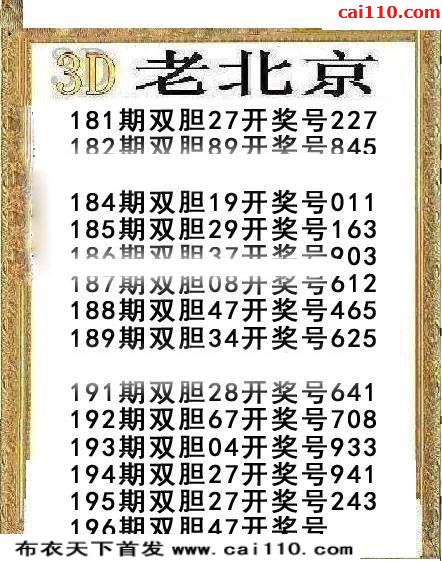 cai110.com
3D 老北京
181期双胆27开奖号227
182期双胆89开奖号845
184期双胆19开奖号011
185期双胆29开奖号163
186期双胆37开奖号903
187期双胆08开奖号612
188期双胆47开奖号465
189期双胆34开奖号625
191期双胆28开奖号641
192期双胆67开奖号708
193期双胆04开奖号933
194期双胆27开奖号941
195期双胆27开奖号243
196期双胆47开奖号
布衣天下首发 www.cai110.com